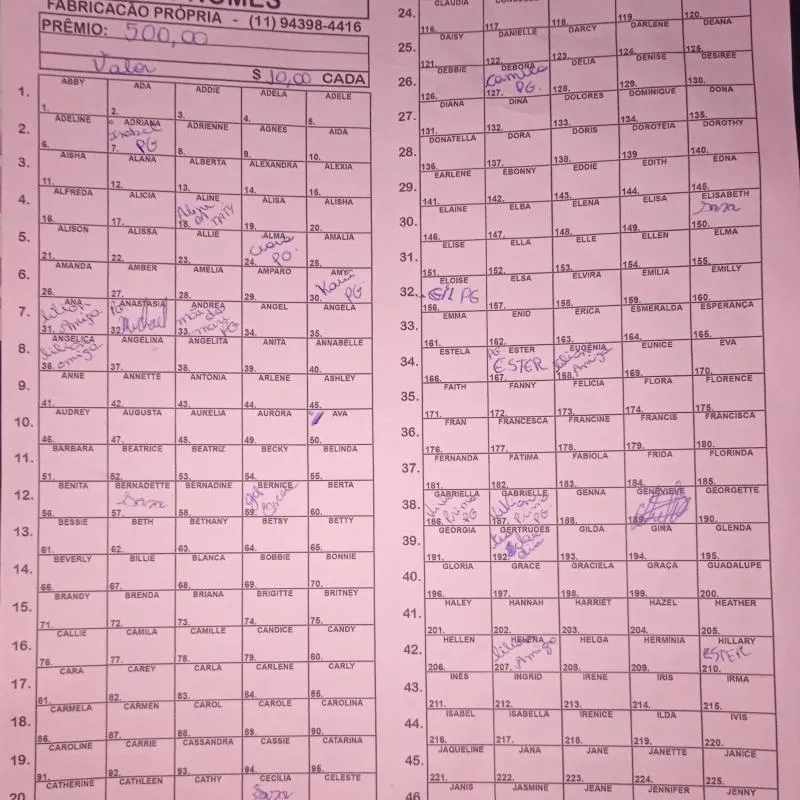 NOMES
FABRICAÇÃO PRÓPRIA - (11) 94398-4416
PRÊMIO: 500,00
Valor $ 10,00 CADA
1. ABBY ADA ADDIE ADELA ADELE
1. 2. 3. 4. 5.
2. ADELINE ADRIANA ADRIENNE AGNES AIDA
Isabel PG
6. 7. 8. 9. 10.
3. AISHA ALANA ALBERTA ALEXANDRA ALEXIA
11. 12. 13. 14. 15.
4. ALFREDA ALICIA ALINE ALISA ALISHA
TATY
16. 17. 18. 19. 20.
5. ALISON ALISSA ALLIE ALMA AMALIA
PG.
21. 22. 23. 24. 25.
6. AMANDA AMBER AMELIA AMPARO AMY
Kaui PG
26. 27. 28. 29. 30.
7. ANA ANASTASIA ANDREA ANGEL ANGELA
Amiga PG Michael PG
31. 32. 33. 34. 35.
8. ANGELICA ANGELINA ANGELITA ANITA ANNABELLE
amiga
36. 37. 38. 39. 40.
9. ANNE ANNETTE ANTONIA ARLENE ASHLEY
41. 42. 43. 44. 45.
10. AUDREY AUGUSTA AURELIA AURORA AVA
46. 47. 48. 49. 50.
11. BARBARA BEATRICE BEATRIZ BECKY BELINDA
51. 52. 53. 54. 55.
12. BENITA BERNADETTE BERNADINE BERNICE BERTA
56. 57. 58. 59. 60.
13. BESSIE BETH BETHANY BETSY BETTY
61. 62. 63. 64. 65.
14. BEVERLY BILLIE BLANCA BOBBIE BONNIE
66. 67. 68. 69. 70.
15. BRANDY BRENDA BRIANA BRIGITTE BRITNEY
71. 72. 73. 74. 75.
16. CALLIE CAMILA CAMILLE CANDICE CANDY
76. 77. 78. 79. 80.
17. CARA CAREY CARLA CARLENE CARLY
81. 82. 83. 84. 85.
18. CARMELA CARMEN CAROL CAROLE CAROLINA
86. 87. 88. 89. 90.
19. CAROLINE CARRIE CASSANDRA CASSIE CATARINA
91. 92. 93. 94. 95.
20 CATHERINE CATHLEEN CATHY CECÍLIA CELESTE
24. CLAUDIA
116. 117. 118. 119. 120.
25. DAISY DANIELLE DARCY DARLENE DEANA
121. 122. 123. 124. 125.
26. DEBBIE DEBORA DELIA DENISE DESIREE
Camila PG.
126. 127. 128. 129. 130.
27. DIANA DINA DOLORES DOMINIQUE DONA
131. 132. 133. 134. 135.
28. DONATELLA DORA DORIS DOROTEIA DOROTHY
136. 137. 138. 139 140.
29. EARLENE EBONNY EDDIE EDITH EDNA
141. 142. 143. 144. 145.
30. ELAINE ELBA ELENA ELISA ELISABETH
146. 147. 148. 149. 150.
31. ELISE ELLA ELLE ELLEN ELMA
151. 152. 153. 154. 155.
32. ELOISE ELSA ELVIRA EMILIA EMILLY
Gil PG
156. 157. 158. 159. 160.
33. EMMA ENID ERICA ESMERALDA ESPERANÇA
161. 162. 163. 164. 165.
34. ESTELA ESTER EUGÊNIA EUNICE EVA
PG ESTER Amiga
166. 167. 168. 169. 170.
35. FAITH FANNY FELICIA FLORA FLORENCE
171. 172. 173. 174. 175.
36. FRAN FRANCESCA FRANCINE FRANCIS FRANCISCA
176. 177. 178. 179. 180.
37. FERNANDA FATIMA FABIOLA FRIDA FLORINDA
181. 182. 183. 184. 185.
38. GABRIELLA GABRIELLE GENNA GENEVIEVE GEORGETTE
Prima PG Prima PG.
186. 187. 188. 189. 190.
39. GEORGIA GERTRUDES GILDA GINA GLENDA
191. 192. 193. 194. 195.
40. GLORIA GRACE GRACIELA GRAÇA GUADALUPE
196. 197. 198. 199. 200.
41. HALEY HANNAH HARRIET HAZEL HEATHER
201. 202. 203. 204. 205.
42. HELLEN HELENA HELGA HERMINIA HILLARY
Amiga ESTER
206. 207. 208. 209. 210.
43. INES INGRID IRENE IRIS IRMA
211. 212. 213. 214. 215.
44. ISABEL ISABELLA IRENICE ILDA IVIS
216. 217. 218. 219. 220.
45. JAQUELINE JANA JANE JANETTE JANICE
221. 222. 223. 224. 225.
46 JANIS JASMINE JEANE JENNIFER JENNY